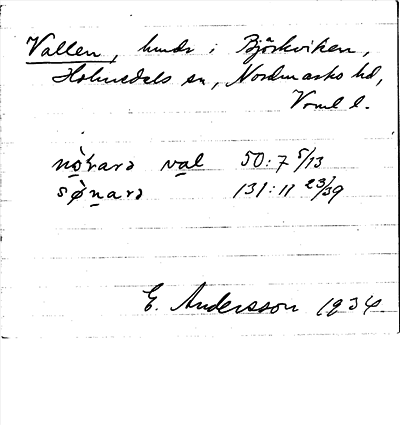 Vallen, hmdr i Björkviken,
Holmedals sn, Nordmarks hd,
Vrml l.
nò̱rarə va̱l 50:7 5/13
sø̀ṉarə 131:11 23/39
E. Andersson 1934